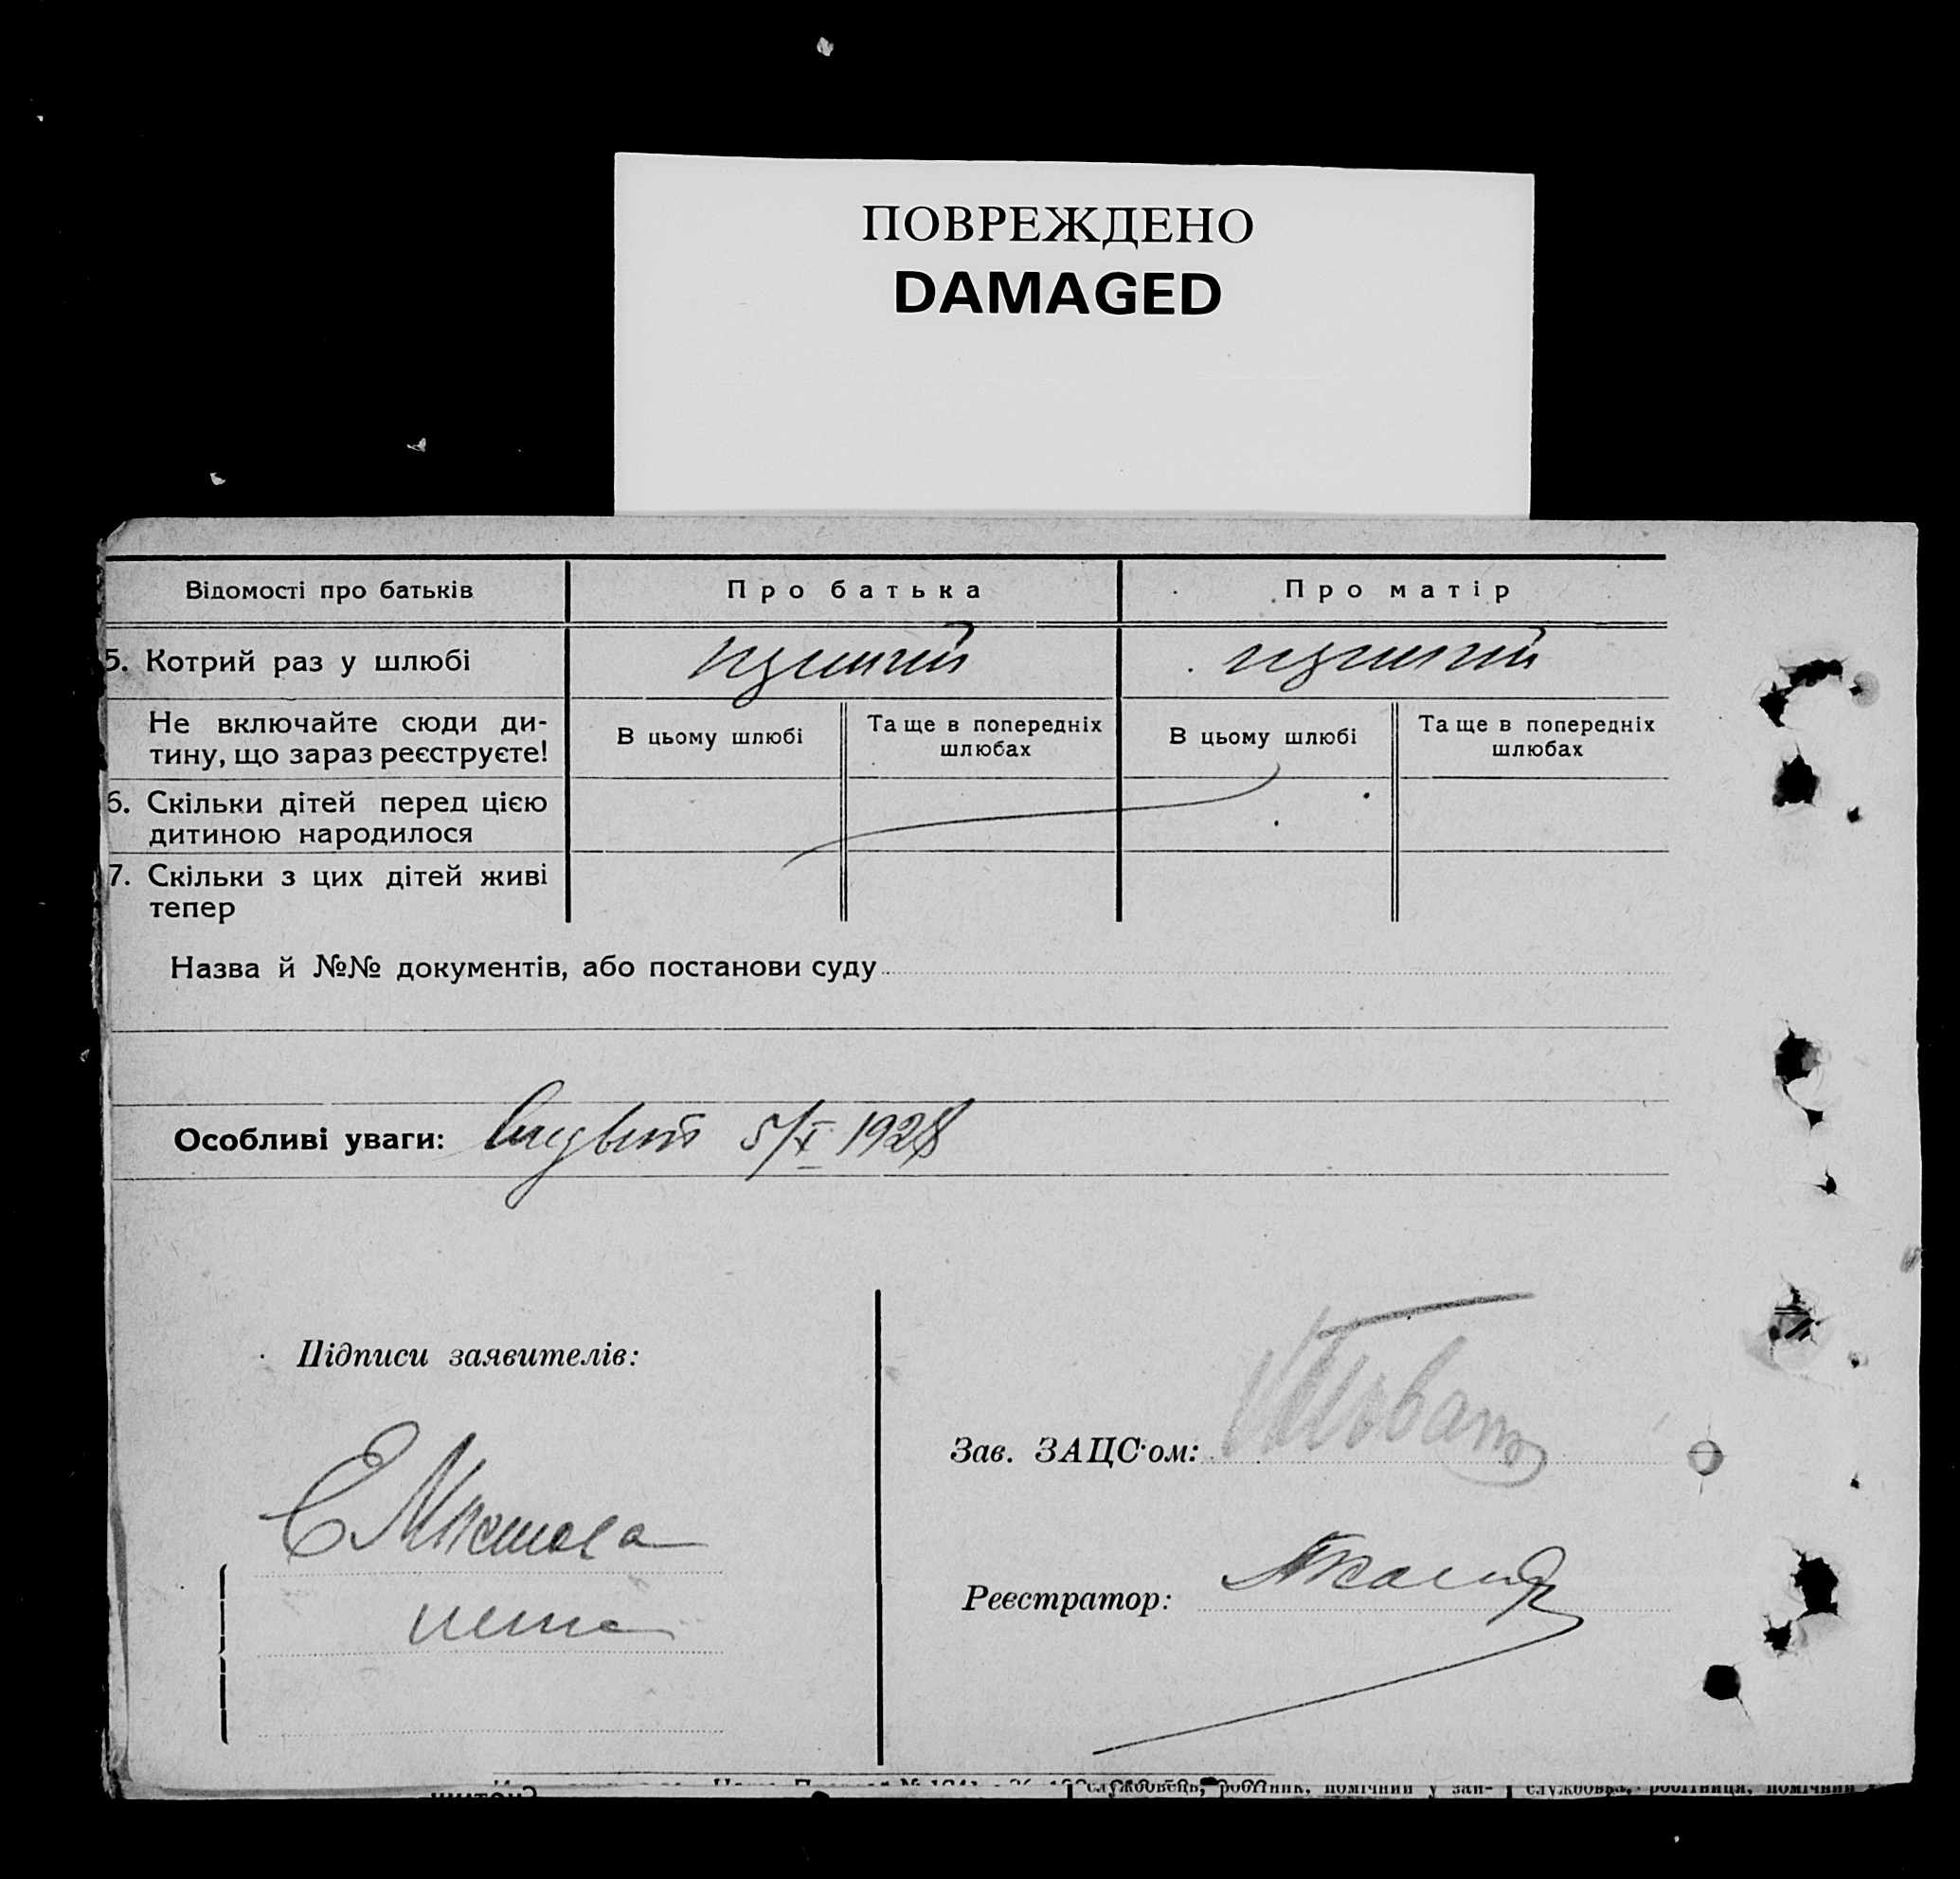 ПОВРЕЖДЕНО
DAMAGED
Відомості про батьків
Про батька
Про матір
5. Котрий раз у шлюбі
Не включайте сюди ди-
тину, що зараз реєструєте!
В цьому шлюбі
Та ще в попередніх
шлюбах
В цьому шлюбі
Та ще в попередніх
шлюбах
6. Скільки дітей перед цією
дитиною народилося
7. Скільки з цих дітей живі
тепер
Назва й №№ документів, або постанови суду
Особливі уваги: 5/X 1928
Підписи заявителів:
Зав. ЗАЦС'ом:
Реєстратор:
службовець, робітник, помічний у зан-
службовка, робітниця, помічний